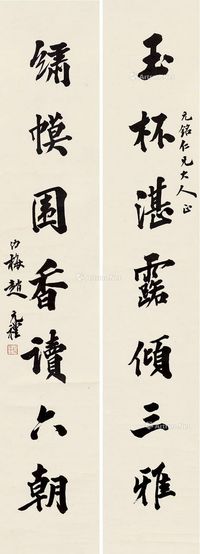 玉杯湛露傾三雅
元銘仁兄大人正
繡幙圍香讀六朝
沙梅趙元禮